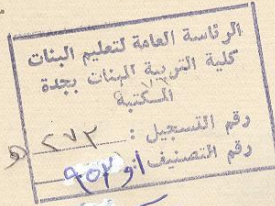 الرئاسة العامة لتعليم البنات
كلية التربية للبنات بجدة
المكتبة
رقم التسجيل : ٢٧٢
رقم التصنيف